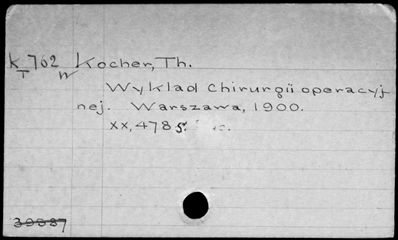 K 762 Kocher, Th.
T W
Wykład Chirurgii operacyj
nej. Warszawa, 1900.
XX, 478 s.
39887